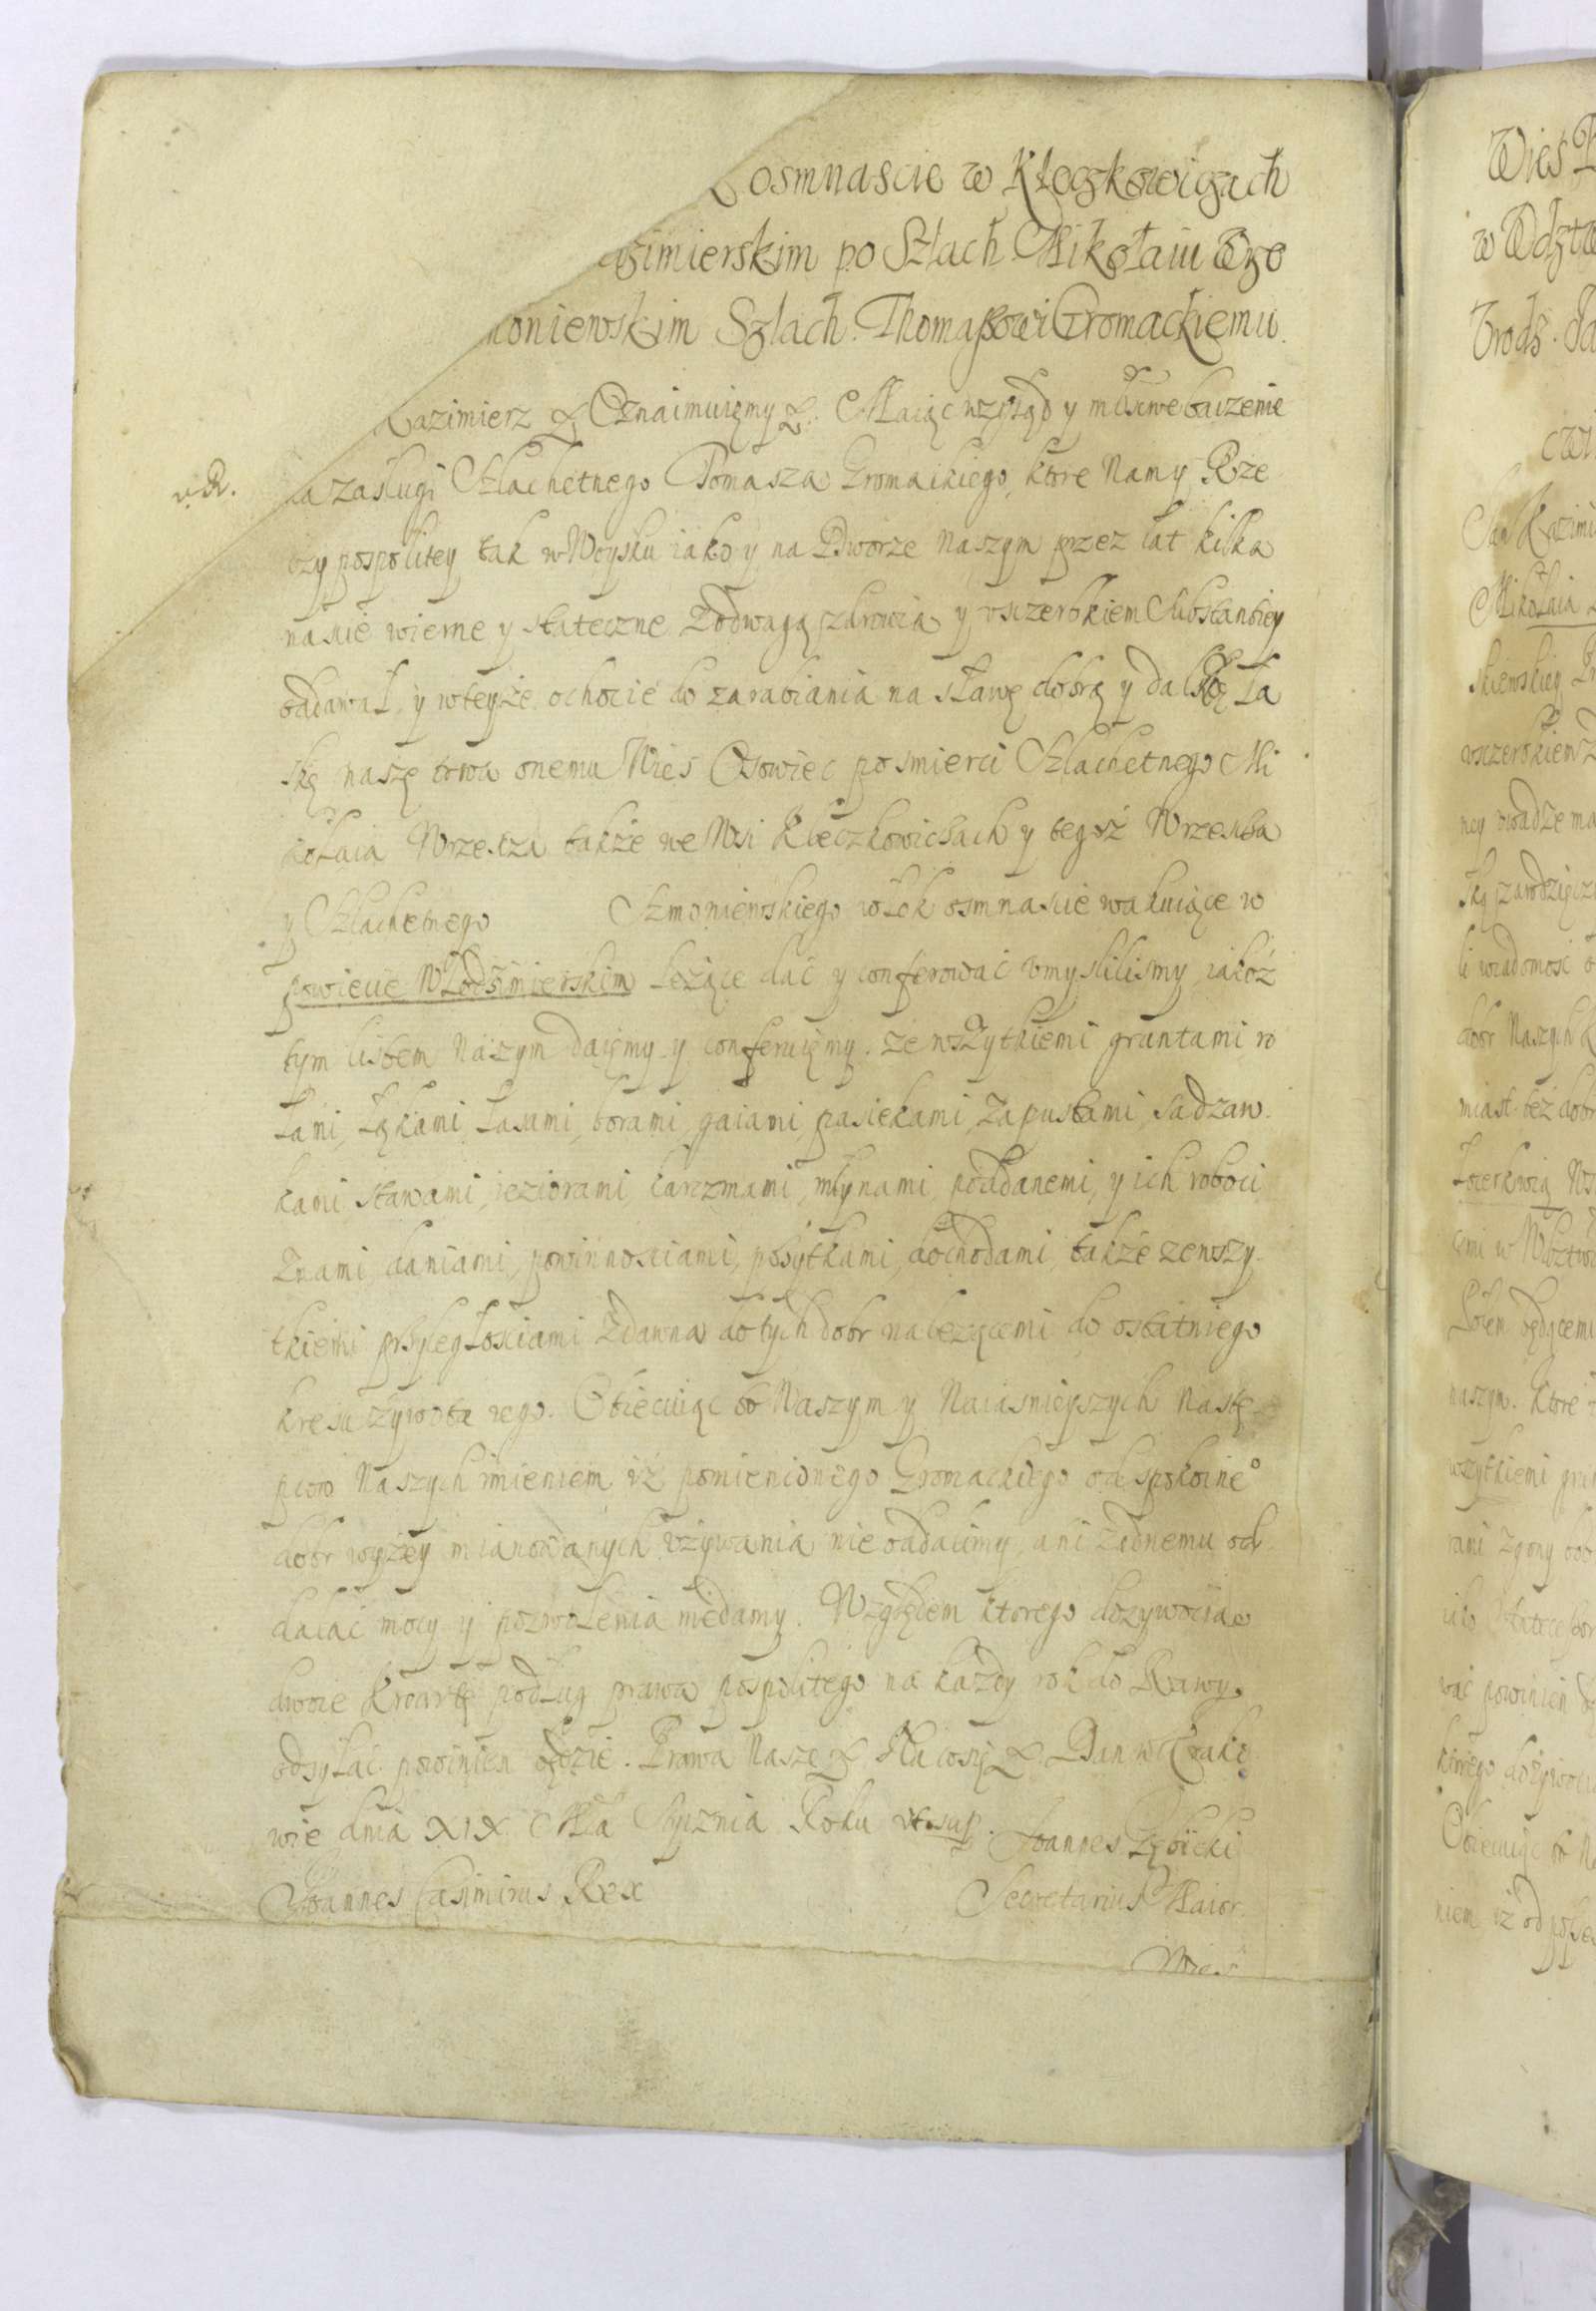 osmnascie w Kłeczkowiczach
zimierskim po Szlach Mikołaiu Wrze
moniewskim Szlach. Thomaszowi Gromackiemu.
Kazimierz & Oznaimuięmy &. Maiąc wzgląd y młsciwe baczenie
v.R. na zasługi Szlachetnego Tomasza Gromackiego, ktore Nam y Rze
czy pospolitey tak w Woysku iako y na Dworze Naszym przez lat kilka
nascie wierne y stateczne Zodwagą zdrowia y vsczerbkiem Substantiey
oddawał, y wteyże ochocie do zarabiania na sławę dobrą y dalszą Ła
skę naszę trwa onemu Wies Osowiec po smierci Szlachetnego Mi
kołaia Wrzescza także we Wsi Kłeczkowiczach y tegoż Wrzescza
y Szlachetnego Szmoniewskiego włok osmnascie wakuiące w
powiecie Włodzimierskim Leżące dać y conferować vmyslilismy iakoż
tym listem Naszym daięmy y conferuięmy. ze wszytkiemi gruntami ro
lami, Łąkami Lasami, borami, gaiami pasiekami, Zapustami, Sadzaw
kami stawami, ieziorami, karczmami, młynami, poddanemi, y ich roboci
Znami, daniami, powinnosciami, pożytkami, dochodami, także ze wszy-
tkiemi przyległosciami Zdawna do tych dobr należącemi do ostatniego
kresu żywota iego. Obiecuiąc to Naszym y Naiasnieyszych Nastę-
pcow Naszych imieniem iż pomienionego Gromackiego od spokoine°
dobr wyżey mianowanych vżywania nie oddalimy, ani żadnemu od
dalać mocy y pozwolenia niedamy. Względem ktorego dozywocia
dwoie kwartę podług prawa pospolitego na każdy rok do Rawy
odsyłać powinien będzie. Prawa Nasze & Na cosię & Dan w Krako
wie dnia XIX Mca Stycznia Roku vt sup. Joannes Gębicki
Joannes Casimirus Rex Secretarius Maior.
Wies